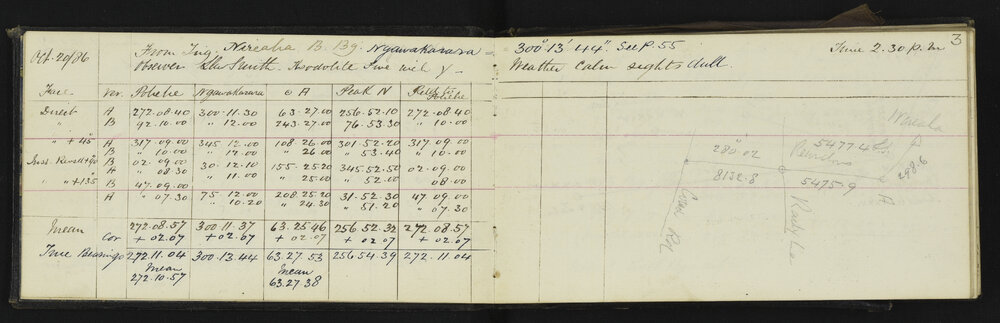 3
Oct. 20/86 From Trig. Nireaha B. Bg. Ngawakarara = 300° 13' 44". See P. 55 Time 2.30 p.m
Observer Smith. Theodolite Five inch Y Weather Calm sights dull.
Face Ver. Pohehe Ngawakarara A Peak N Pohehe
Direct A 272.08.40 300.11.30 63.27.00 256.52.10 272.08.40
" B 92.10.00 " 12.00 243.27.00 76.53.30 " 10.00
" +45° A 317.09.00 345.12.00 108.26.00 301.52.20 317.09.00
B " 10.00 " 12.00 " 26.00 " 53.40 " 10.00
B 02.09.00 30.12.10 155.25.20 345.52.50 02.09.00
A " 08.30 " 11.00 " 25.00 " 52.00 08.00
" +135 B 47.09.00 75.12.00 208.25.20 31.52.30 47.09.00
A " 07.30 " 10.20 " 24.30 " 51.20 07.30
Mean 272.08.57 300.11.37 63.25.46 256.52.32 272.08.57
Cor +02.07 +02.07 +02.07 +02.07 +02.07
True Bearings 272.11.04 300.13.44 63.27.53 256.54.39 272.11.04
Mean Mean
272.10.57 63.27.38
Nireaha
5477.4
280.02
8132.8
5475.9
298.6